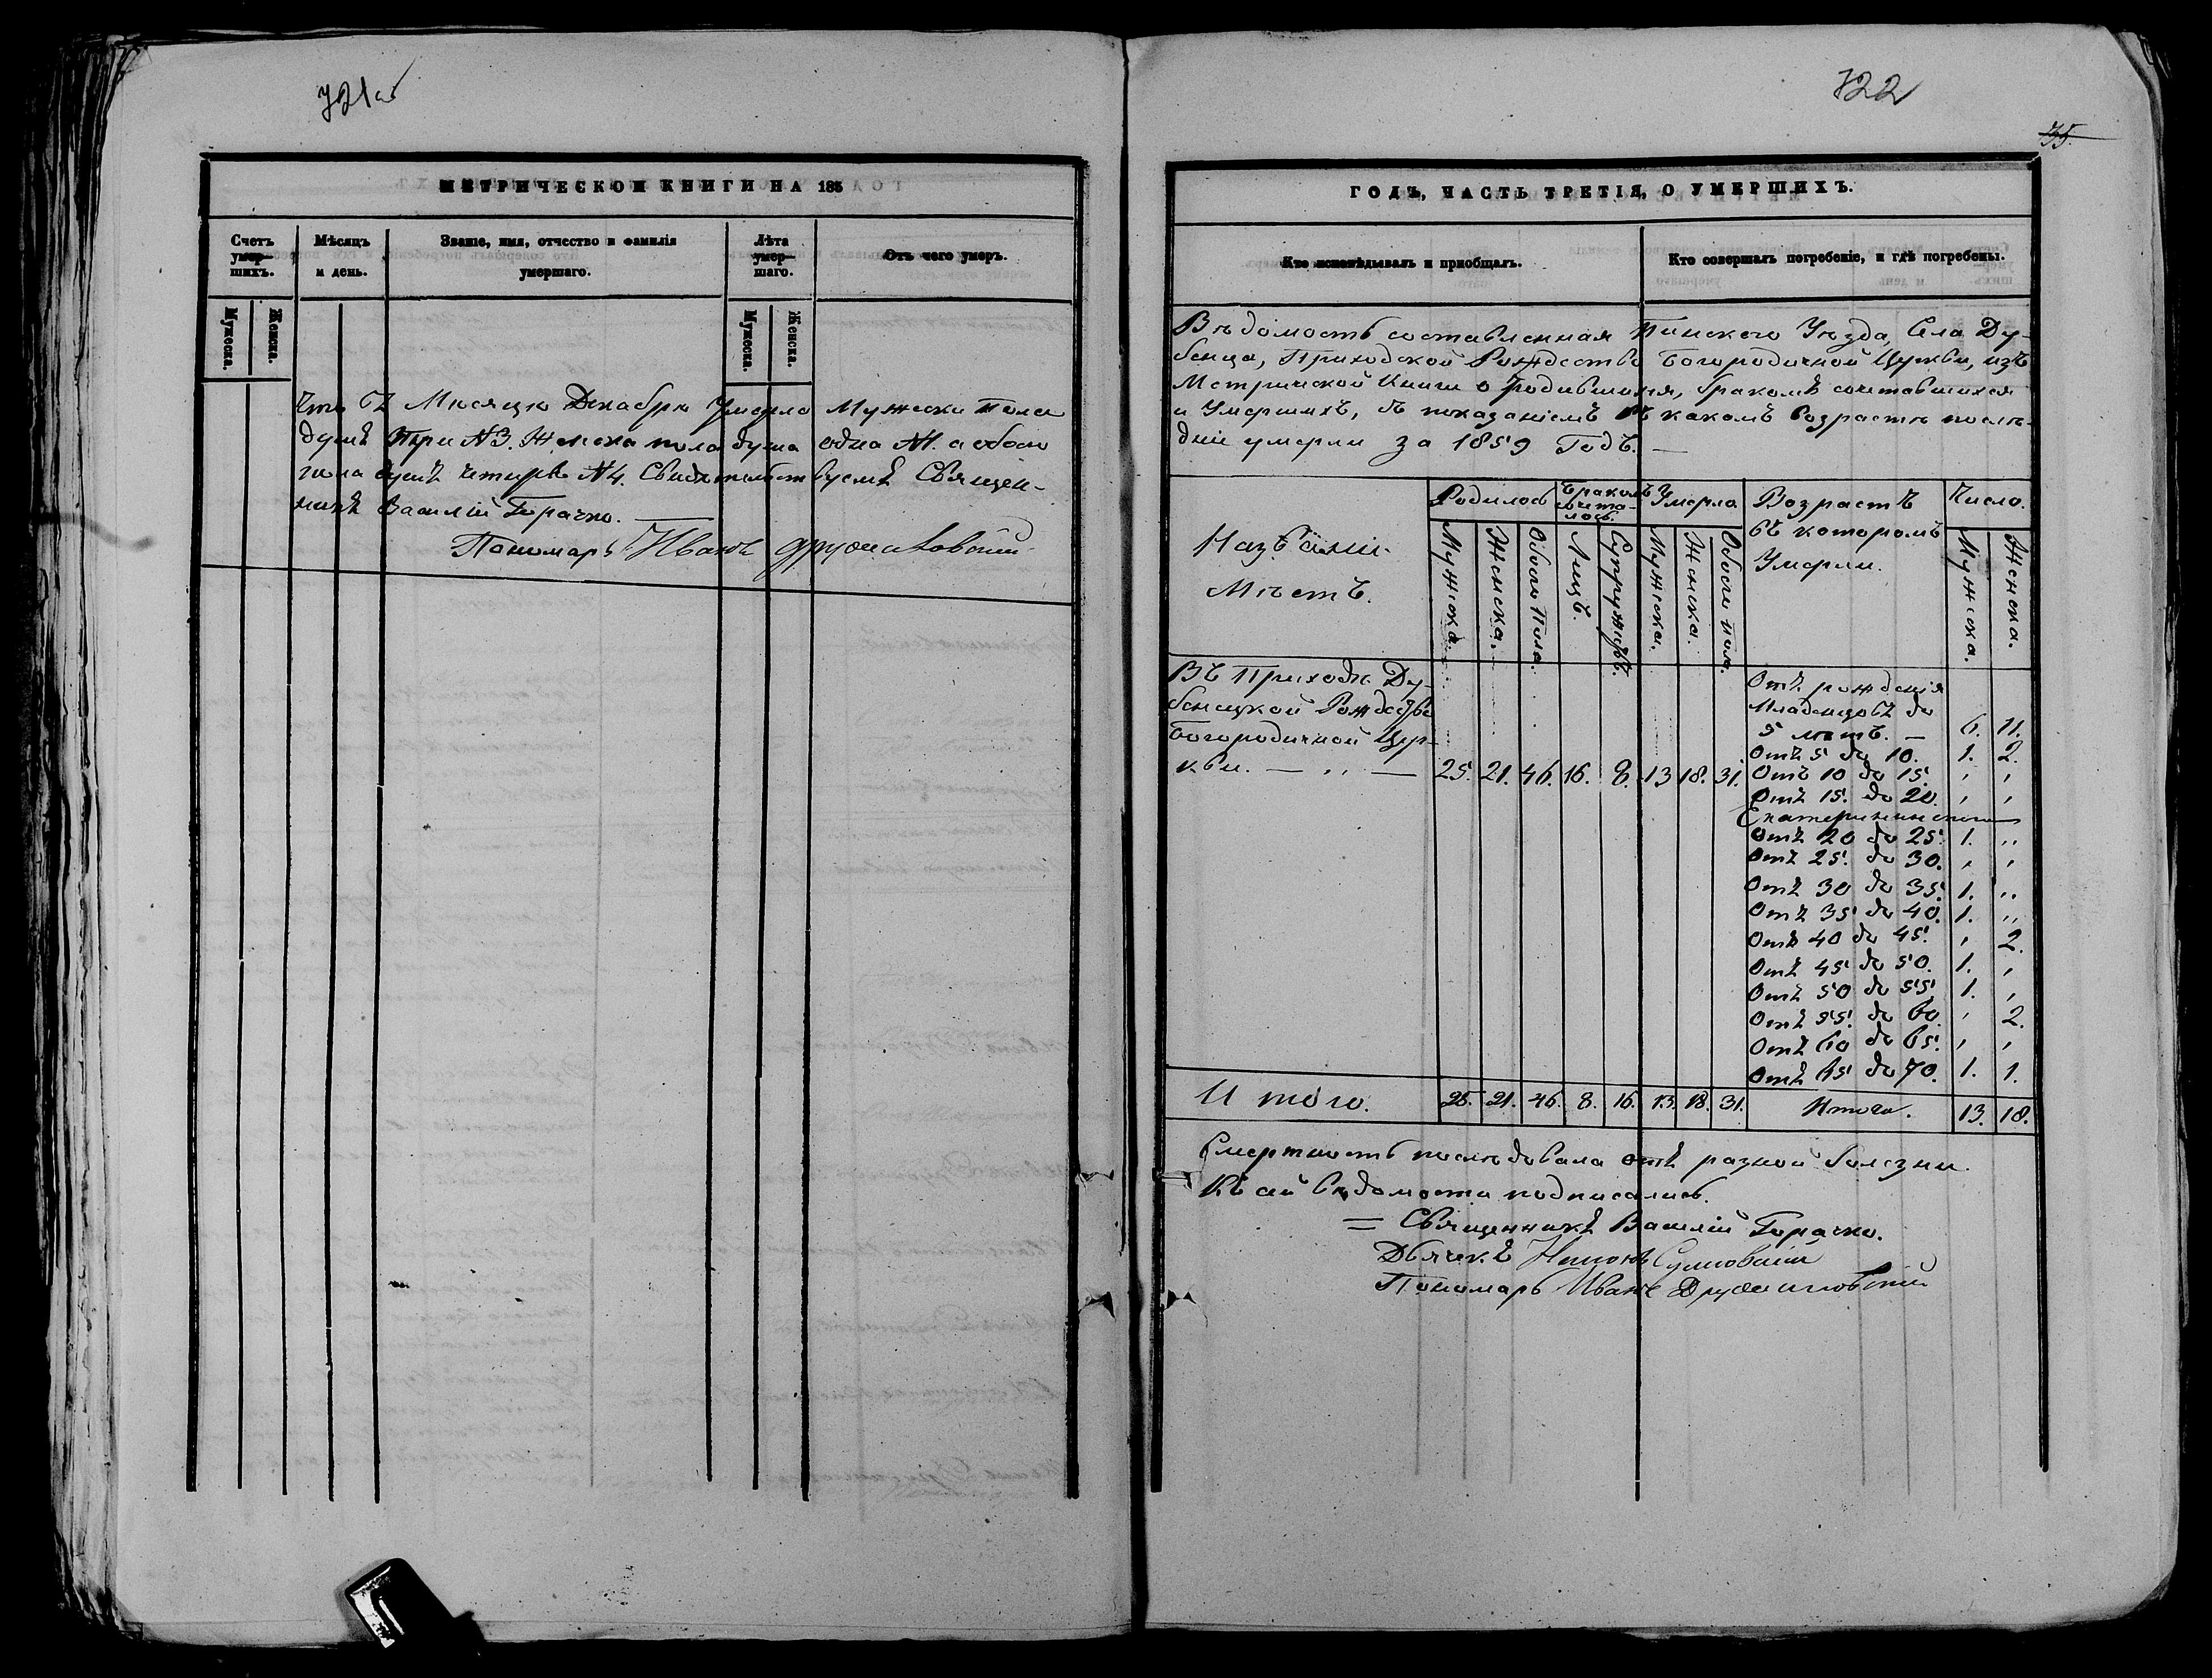 721об
МЕТРИЧЕСКОЙ КНИГИ НА 185
Счетъ умер-шихъ.
Мѣсяцъ и день.
Званіе, имя, отчество и фамилія умершаго.
Лѣта умер-шаго.
Отъ чего умеръ.
Мужеска.
Женска.
Мужеска.
Женска.
Что въ Мѣсяцѣ Декабрѣ Умерло Мужеска пола
душъ три №3. Женска пола душа одна №1. а обоего
пола душъ четыре №4. Свидѣтельствуемъ Священ-
никъ Василій Горачко.
Пономарь Иванъ
722
35.
ГОДЪ, ЧАСТЬ ТРЕТІЯ, О УМЕРШИХЪ.
Кто исповѣдывалъ и пріобщалъ.
Кто совершалъ погребеніе, и гдѣ погребены.
Вѣдомость составленная Пинскаго Уѣзда, Села Ду-
бенца, Приходской Рождество Богородичной Церкви, изъ
Метрической Книги о Родившихся, бракомъ сочетавшихся
и Умершихъ, съ показаніемъ въ какомъ возрастѣ послѣ-
дніе умерли за 1859 Годъ. —
Названіи
Мѣстъ.
Родилось
Бракомъ сочета-лось.
Умерло
Возрастъ
въ которомъ
Умерли.
Число.
Мужеска.
Женска.
Обоего Пола
Лицъ.
Супружествъ.
Мужеска.
Женска.
Обоего пола.
Мужеска.
Женска.
Въ Приходѣ Ду-
бенецкой Рождество
Богородичной Цер-
кви. — „ — 25. 21. 46. 16. 8. 13 18. 31.
Отъ рожденія
Младенцовъ до
5 лѣтъ. — 6. 11.
Отъ 5 до 10. 1. 2.
Отъ 10 до 15. , ,
Отъ 15. до 20. , ,
Отъ 20 до 25. 1. „
Отъ 25. до 30. , ,
Отъ 30 до 35. 1. „
Отъ 35 до 40. 1. „
Отъ 40 до 45. , 2.
Отъ 45 до 50. 1. ,
Отъ 50 до 55 1. ,
Отъ 55. до 60. , 2.
Отъ 60 до 65. , ,
Отъ 65 до 70. 1. 1.
Итого. 25. 21. 46. 8. 16. 13. 18. 31. Итого. 13. 18.
Смертность послѣдовала отъ разной болезни.
Къ сей вѣдомости подписались.
= Священникъ Василій Горачко.
Дьячекъ
Пономарь Иванъ